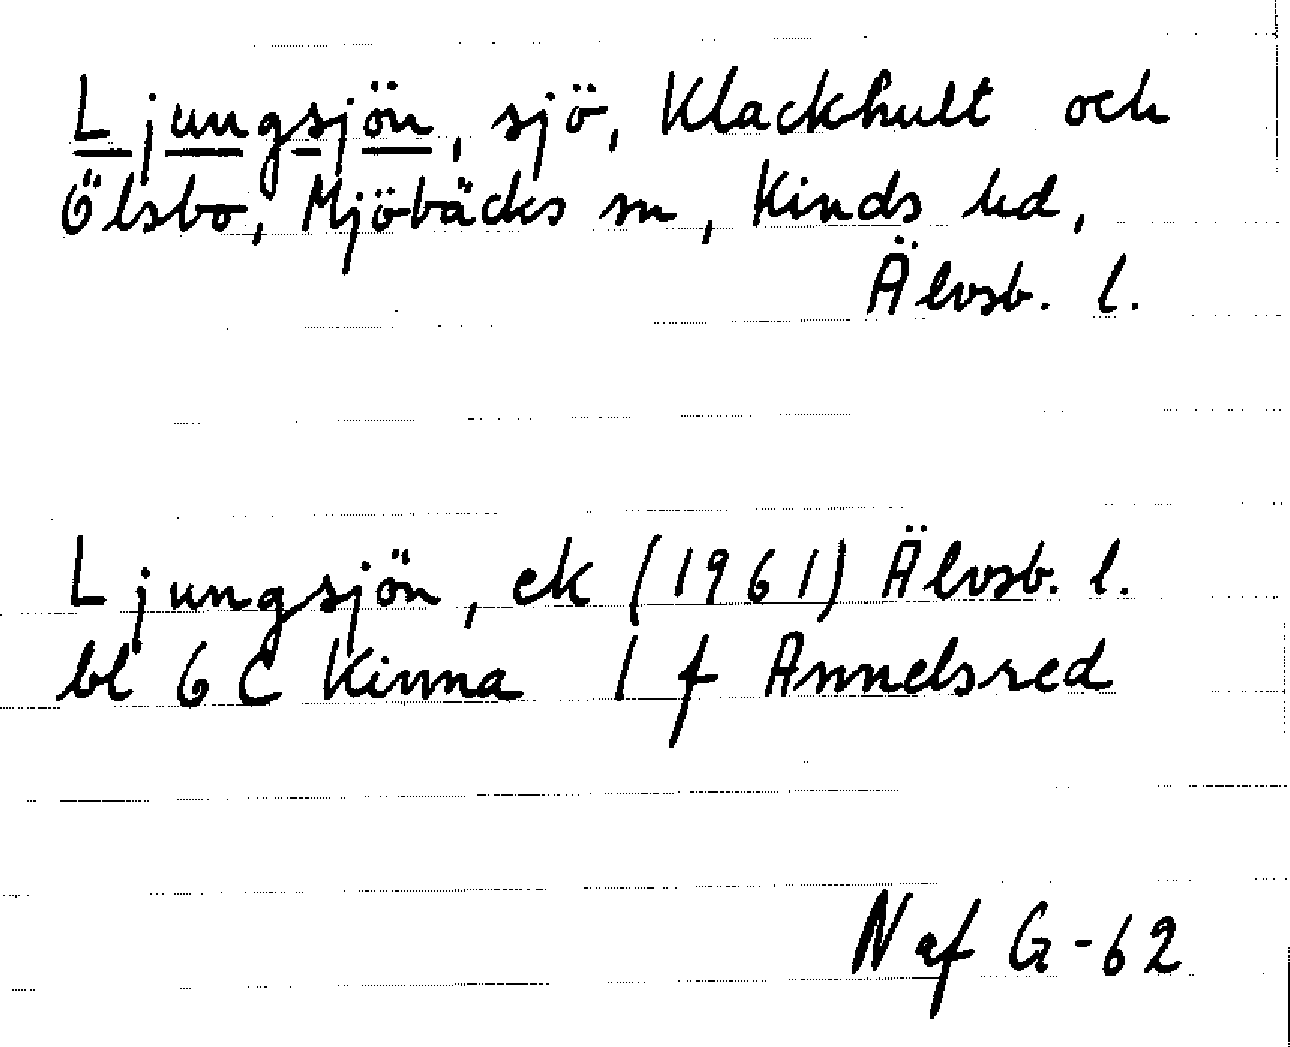 Ljungsjön, sjö, Klackhult och
Ölsbo, Mjöbäcks sn, Kinds hd,
Älvsb. l.
Ljungsjön, ek (1961) Älvsb. l.
bl 6 C Kinna 1 f Annelsred
Naf G-62